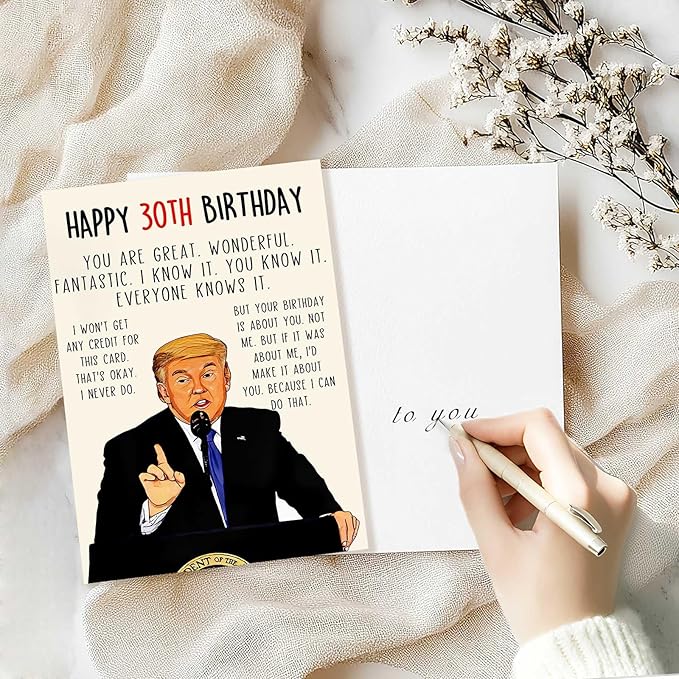 HAPPY 30TH BIRTHDAY
YOU ARE GREAT. WONDERFUL.
FANTASTIC. I KNOW IT. YOU KNOW IT.
EVERYONE KNOWS IT.
I WON'T GET
ANY CREDIT FOR
THIS CARD.
THAT'S OKAY.
I NEVER DO.
BUT YOUR BIRTHDAY
IS ABOUT YOU. NOT
ME. BUT IF IT WAS
ABOUT ME, I'D
MAKE IT ABOUT
YOU. BECAUSE I CAN
DO THAT.
DENT OF THE
to you